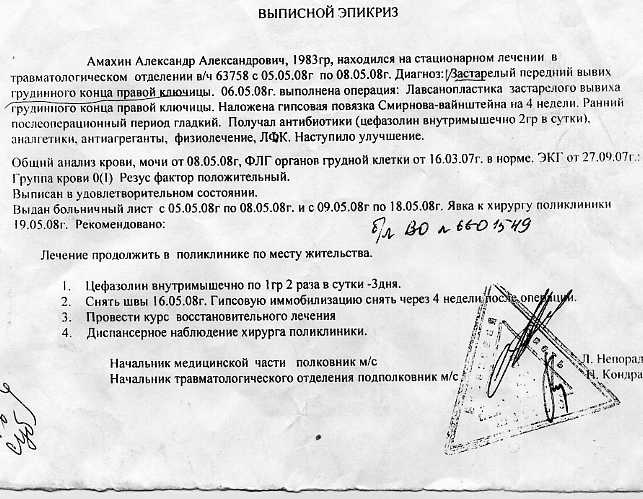 ВЫПИСНОЙ ЭПИКРИЗ
Амахин Александр Александрович, 1983гр, находился на стационарном лечении в
травматологическом отделении в/ч 63758 с 05.05.08г по 08.05.08г. Диагноз: Застарелый передний вывих
грудинного конца правой ключицы. 06.05.08г. выполнена операция: Лавсанопластика застарелого вывиха
грудинного конца правой ключицы. Наложена гипсовая повязка Смирнова-вайнштейна на 4 недели. Ранний
послеоперационный период гладкий. Получал антибиотики (цефазолин внутримышечно 2гр в сутки),
аналгетики, антиагреганты, физиолечение, ЛФК. Наступило улучшение.
Общий анализ крови, мочи от 08.05.08г, ФЛГ органов грудной клетки от 16.03.07г. в норме. ЭКГ от 27.09.07г.:
Группа крови 0(I) Резус фактор положительный.
Выписан в удовлетворительном состоянии.
Выдан больничный лист с 05.05.08г по 08.05.08г. и с 09.05.08г по 18.05.08г. Явка к хирургу поликлиники
19.05.08г. Рекомендовано:
б/л ВО № 6601549
Лечение продолжить в поликлинике по месту жительства.
1. Цефазолин внутримышечно по 1гр 2 раза в сутки -3дня.
2. Снять швы 16.05.08г. Гипсовую иммобилизацию снять через 4 недели после операции.
3. Провести курс восстановительного лечения
4. Диспансерное наблюдение хирурга поликлиники.
Начальник медицинской части полковник м/с Л. Непорад
Начальник травматологического отделения подполковник м/с Н. Кондра